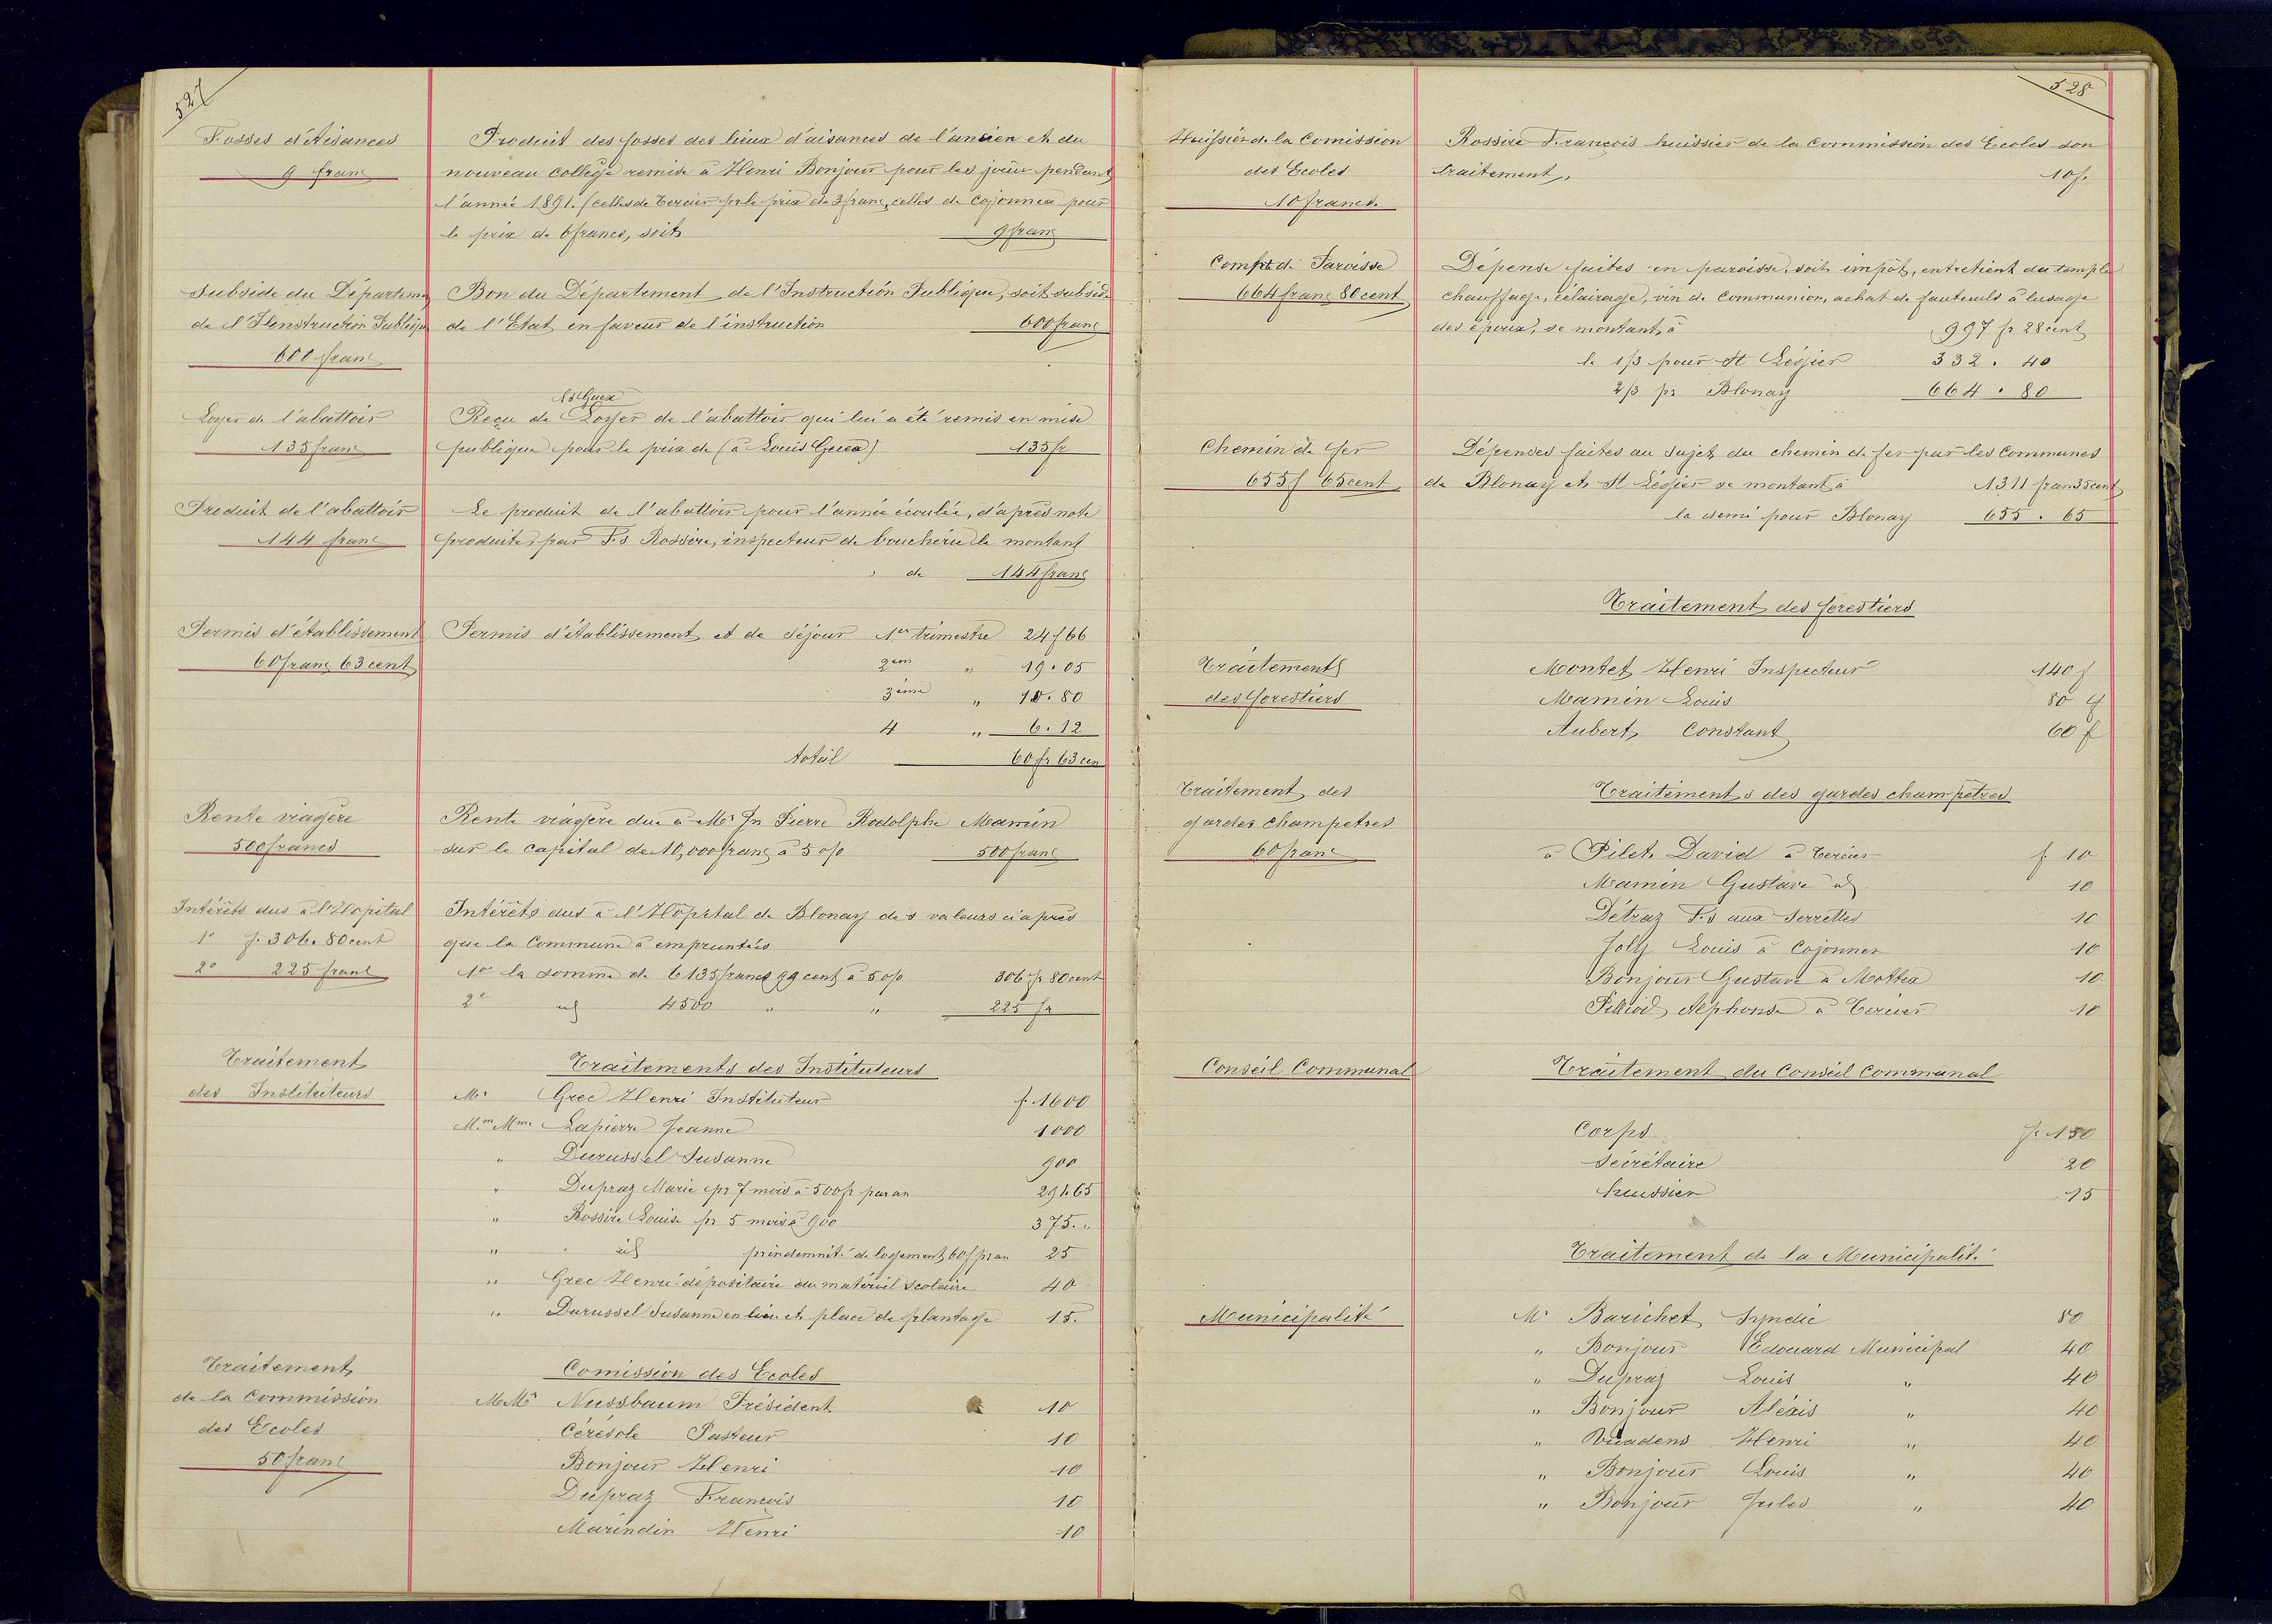 527
Fosses d'Aisances
9 franc
Produit des fosses des lieux d'aisances de l'ancien et du
nouveau collège remise à Henri Bonjour pour les jouir pendant
l'année 1891. (celles de Tercier pr le prix de 3 franc, celles de Cojonnex pour
le prix de 6 francs, soit 9 franc
Subside du Départem
de l'Instruction Publique
600 franc
Bon du Département de l'Instruction Publique, soit subside
de l'Etat en faveur de l'instruction 600 franc
Loyer de l'abattoir
135 franc
Ls Guex
Reçu de Loyer de l'abattoir qui lui a été remis en mise
publique pour le prix de (à Louis Guex) 135 fr
Produit de l'abattoir
144 franc
Le produit de l'abattoir pour l'année écoulée, d'après note
produite par Fs Rossire, inspecteur de boucherie le montant
de 144 franc
Permis d'établissement
60 franc 63 cent
Permis d'établissement et de séjour 1er trimestre 24 f 66
2em " 19.05
3ème " 10.80
4 " 6.12
total 60 fr 63 cen
Rente viagère
500 francs
Rente viagère due à Mr Jn Pierre Rodolphe Mamin
sur le capital de 10,000 franc à 5 o/o 500 franc
Intérêts dus à l'Hopital
1° f. 306.80 cent
2° 225 franc
Intérêts dus à l'Hôpital de Blonay des valeurs ci après
que la Commune à empruntées
1° la somme de 6135 francs 99 cent à 5 o/o 306 fr 80 cent
2° id 4500 " " 225 fr
Traitement
des Instituteurs
Traitements des Instituteurs
Mr Grec Henri Instituteur f. 1600
Mm Mme Lapierre Jeanne 1000
" Durussel Susanne 900
" Dupraz Marie pr 7 mois à 500 fr par an 291.65
" Rossire Louise pr 5 mois à 900 375."
" id pr indemnité de logement 60 f pr an 25
" Grec Henri dépositaire du matériel scolaire 40
" Durussel Susanne en lieu et place de plantage 15.
Traitement
de la Commission
des Ecoles
50 franc
Comission des Ecoles
MMr Nussbaum Président 10
Cérésole Pasteur 10
Bonjour Henri 10
Dupraz François 10
Marindin Henri 10
528
Huissier de la Comission
des Ecoles
10 francs.
Rossire François huissier de la Commission des Ecoles son
traitement. 10 f.
Compte de Paroisse
664 franc 80 cent
Dépense faites en paroisse, soit impôt, entretient du temple
chauffage, éclairage, vin de Communion, achat de fauteuils à lusage
des époux, se montant à 997 fr 28 cent
le 1/3 pour St Légier 332.40
2/3 pr Blonay 664.80
Chemin de fer
655 f 65 cent
Dépenses faites au sujet du chemin de fer par les Communes
de Blonay et St Légier se montant à 1311 franc 35 cent
la demi pour Blonay 655.65
Traitement des forestiers
Traitements
des forestiers
Montet Henri Inspecteur 140 f
Mamin Louis 80 f
Aubert Constant 60 f
Traitement des
gardes champetres
60 franc
Traitements des gardes champêtres
à Pilet David à Tercier f. 10
Mamin Gustave id 10
Détraz Fs aux Serrettes 10
Joly Louis à Cojonnex 10
Bonjour Gustave à Mottex 10
Pilliod Alphonse à Tercier 10
Conseil Communal
Traitement du Conseil Communal
Corps fr. 150
Secrétaire 20
huissier 15
Traitement de la Municipalité
Municipalité
Mr Barichet Syndic 80
" Bonjour Edouard Municipal 40
" Dupraz Louis " 40
" Bonjour Aléxis " 40
" Vuadens Henri " 40
" Bonjour Louis " 40
" Bonjour Jules " 40